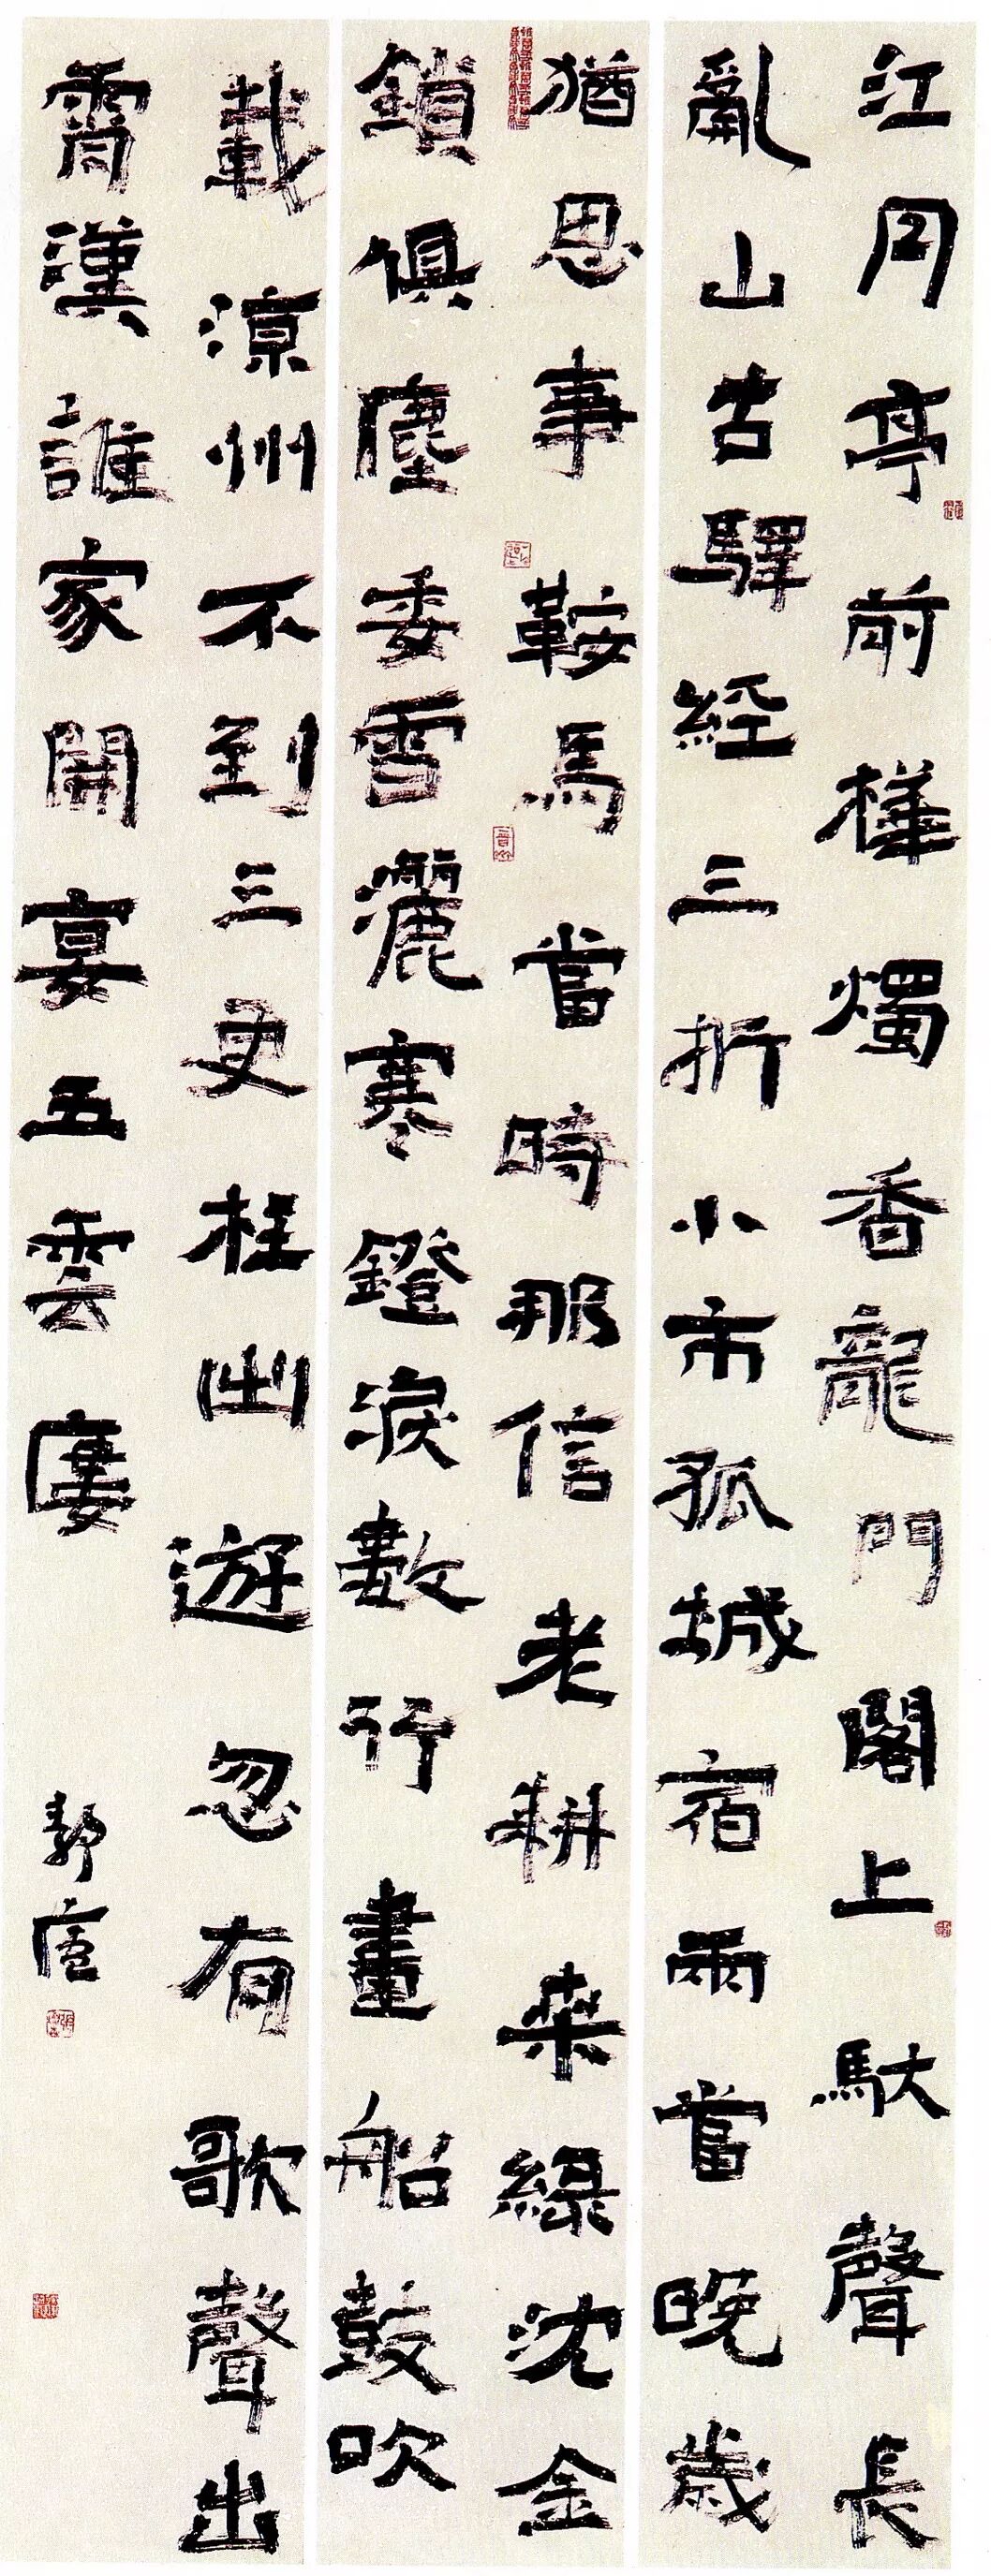 江月亭前樺燭香龍門閣上馱聲長
亂山古驛經三折小市孤城宿兩當晚歲
猶思事鞍馬當時那信老耕桑綠沈金
鎖俱塵委雪灑寒鐙淚數行畫船鼓吹
載涼州不到三更枉出遊忽有歌聲出
霄漢誰家開宴五雲廔